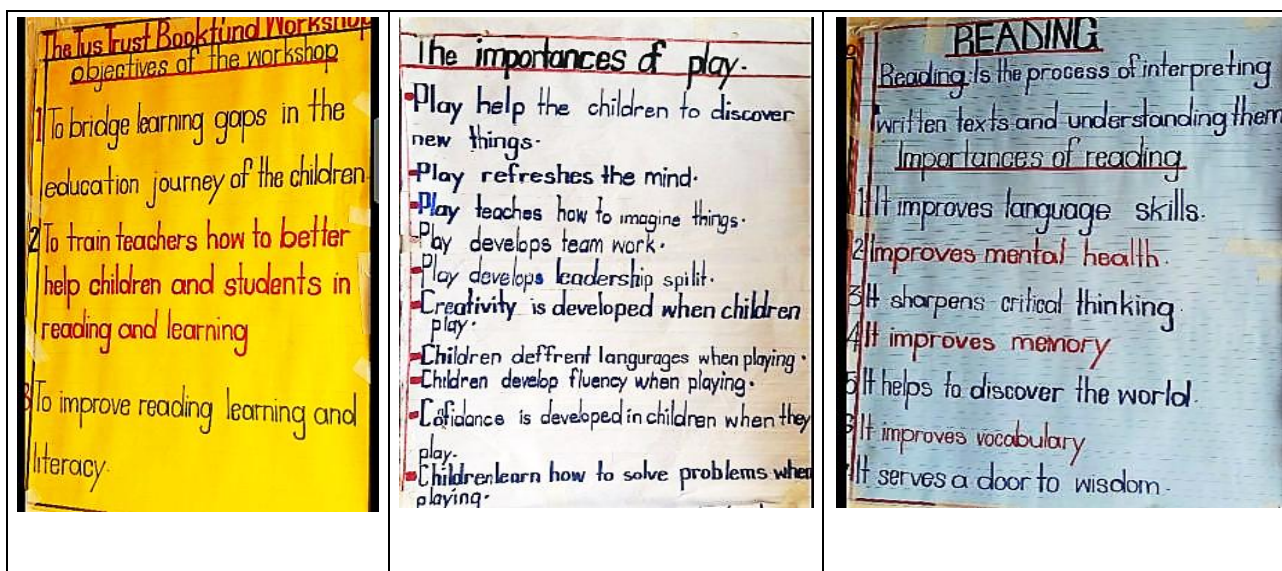 The Tus Trust Bookfund Workshop
objectives of the workshop
1 To bridge learning gaps in the
education journey of the children
2 To train teachers how to better
help children and students in
reading and learning
3 To improve reading learning and
literacy.
The importances of play.
Play help the children to discover
new things.
Play refreshes the mind.
Play teaches how to imagine things.
Play develops team work.
Play develops leadership spilit.
Creativity is developed when children
play.
Children deffrent langurages when playing.
Children develop fluency when playing.
Cofidance is developed in children when they
play.
Children learn how to solve problems when
playing.
READING
Reading: Is the process of interpreting
written texts and understanding them
Importances of reading
1 It improves language skills.
2 Improves mental health.
3 It sharpens critical thinking.
4 It improves memory
5 It helps to discover the world.
6 It improves vocabulary
7 It serves a door to wisdom.